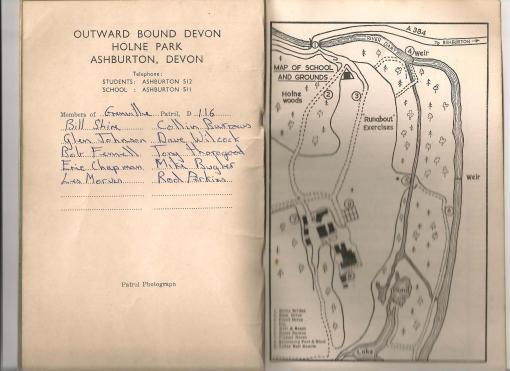 OUTWARD BOUND DEVON
HOLNE PARK
ASHBURTON, DEVON
Telephone:
STUDENTS: ASHBURTON 512
SCHOOL : ASHBURTON 511
Members of Grenville Patrol, D 116
Bill Shire Collin Burrows
Glen Johnson Dave Wilcock
Bob Fennell Tony Thorogood
Eric Chapman Mike Bugler
Les Morvan Rod Perkins
Patrol Photograph
A 384
TO ASHBURTON
RIVER DART
Weir
MAP OF SCHOOL
AND GROUNDS
Holne
woods
Runabout
Exercises
Weir
Lake